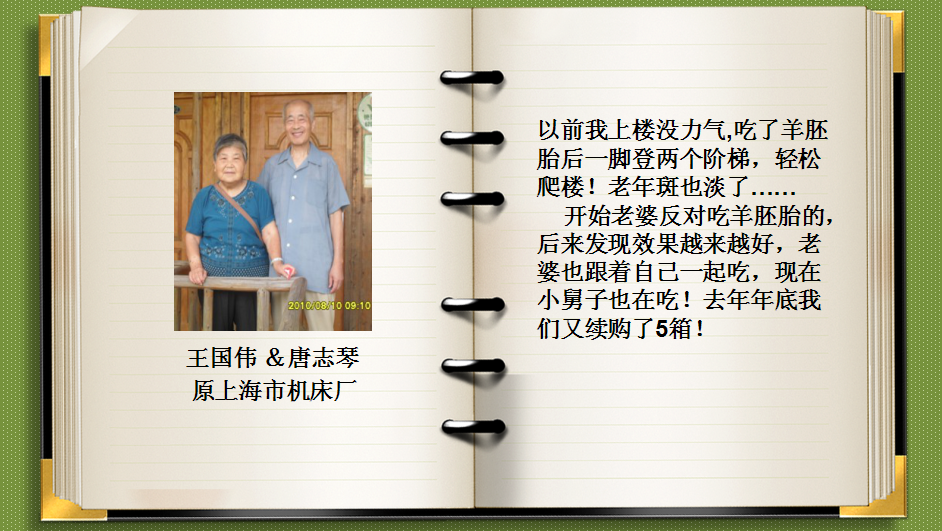 2010/08/10 09:10
王国伟 &唐志琴
原上海市机床厂
以前我上楼没力气,吃了羊胚
胎后一脚登两个阶梯，轻松
爬楼！老年斑也淡了……
开始老婆反对吃羊胚胎的,
后来发现效果越来越好，老
婆也跟着自己一起吃，现在
小舅子也在吃！去年年底我
们又续购了5箱！